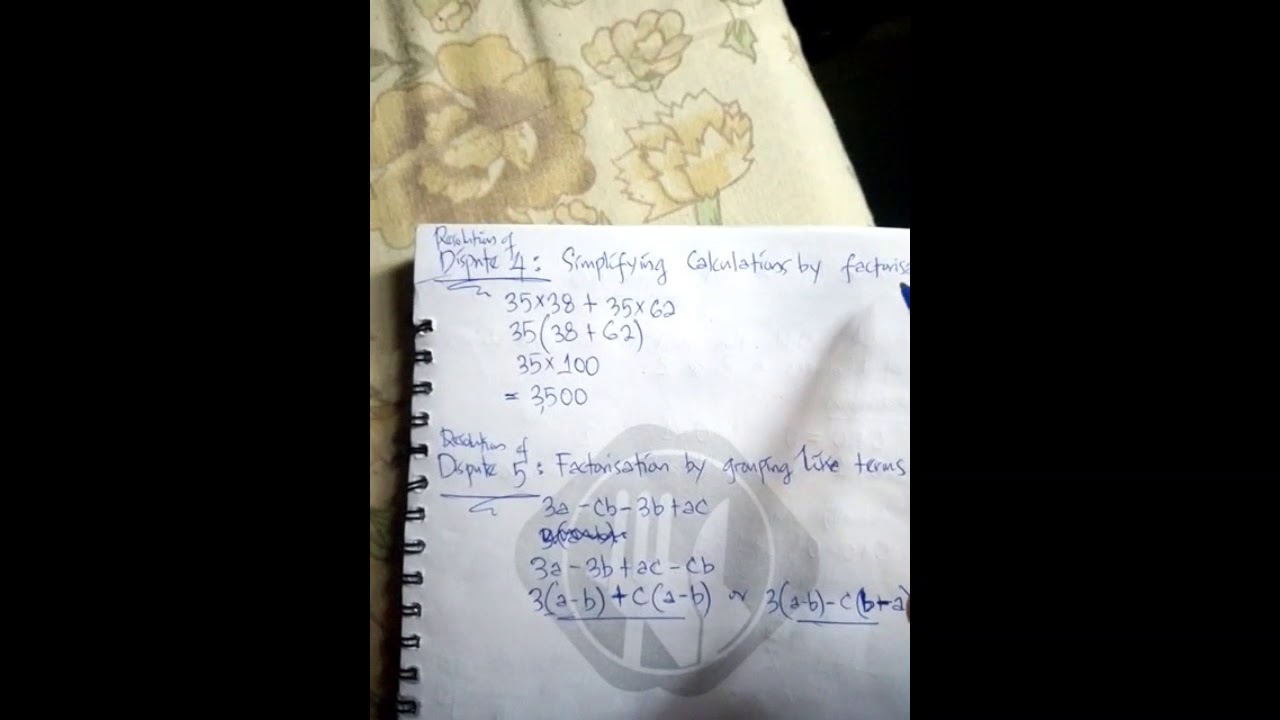 Resolution of
Dispute 4: Simplifying Calculations by factoris
35×38 + 35×62
35(38 + 62)
35×100
= 3,500
Resolution of
Dispute 5: Factorisation by grouping like terms
3a - cb - 3b + ac
3a - 3b + ac - cb
3(a-b) + c(a-b) or 3(a-b) - c(b-a)